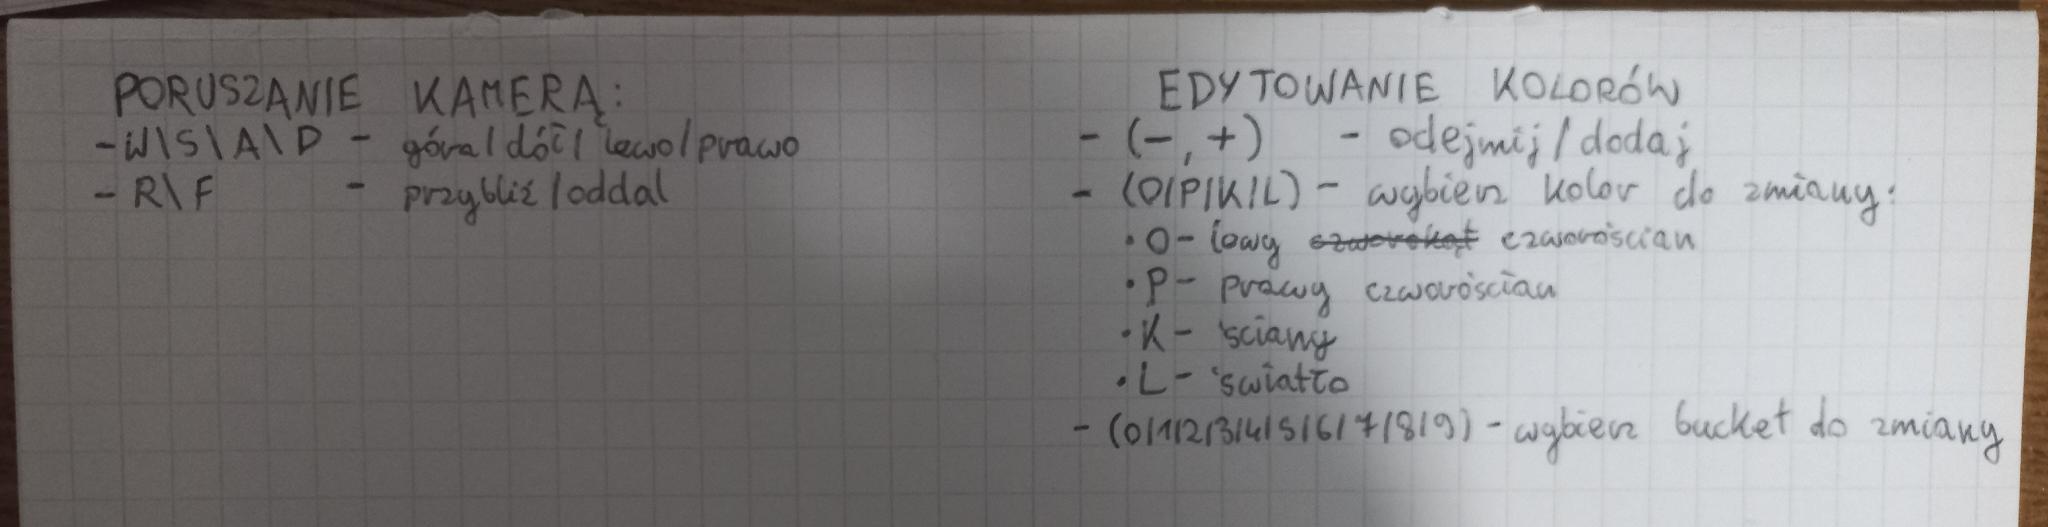 PORUSZANIE KAMERĄ:
- W\S\A\D - góra/dół/lewo/prawo
- R\F - przybliż/oddal
EDYTOWANIE KOLORÓW
- (-, +) - odejmij/dodaj
- (O/P/K/L) - wybierz kolor do zmiany:
• O - lewy czworokąt czworościan
• P - prawy czworościan
• K - ściany
• L - światło
- (0/1/2/3/4/5/6/7/8/9) - wybierz bucket do zmiany